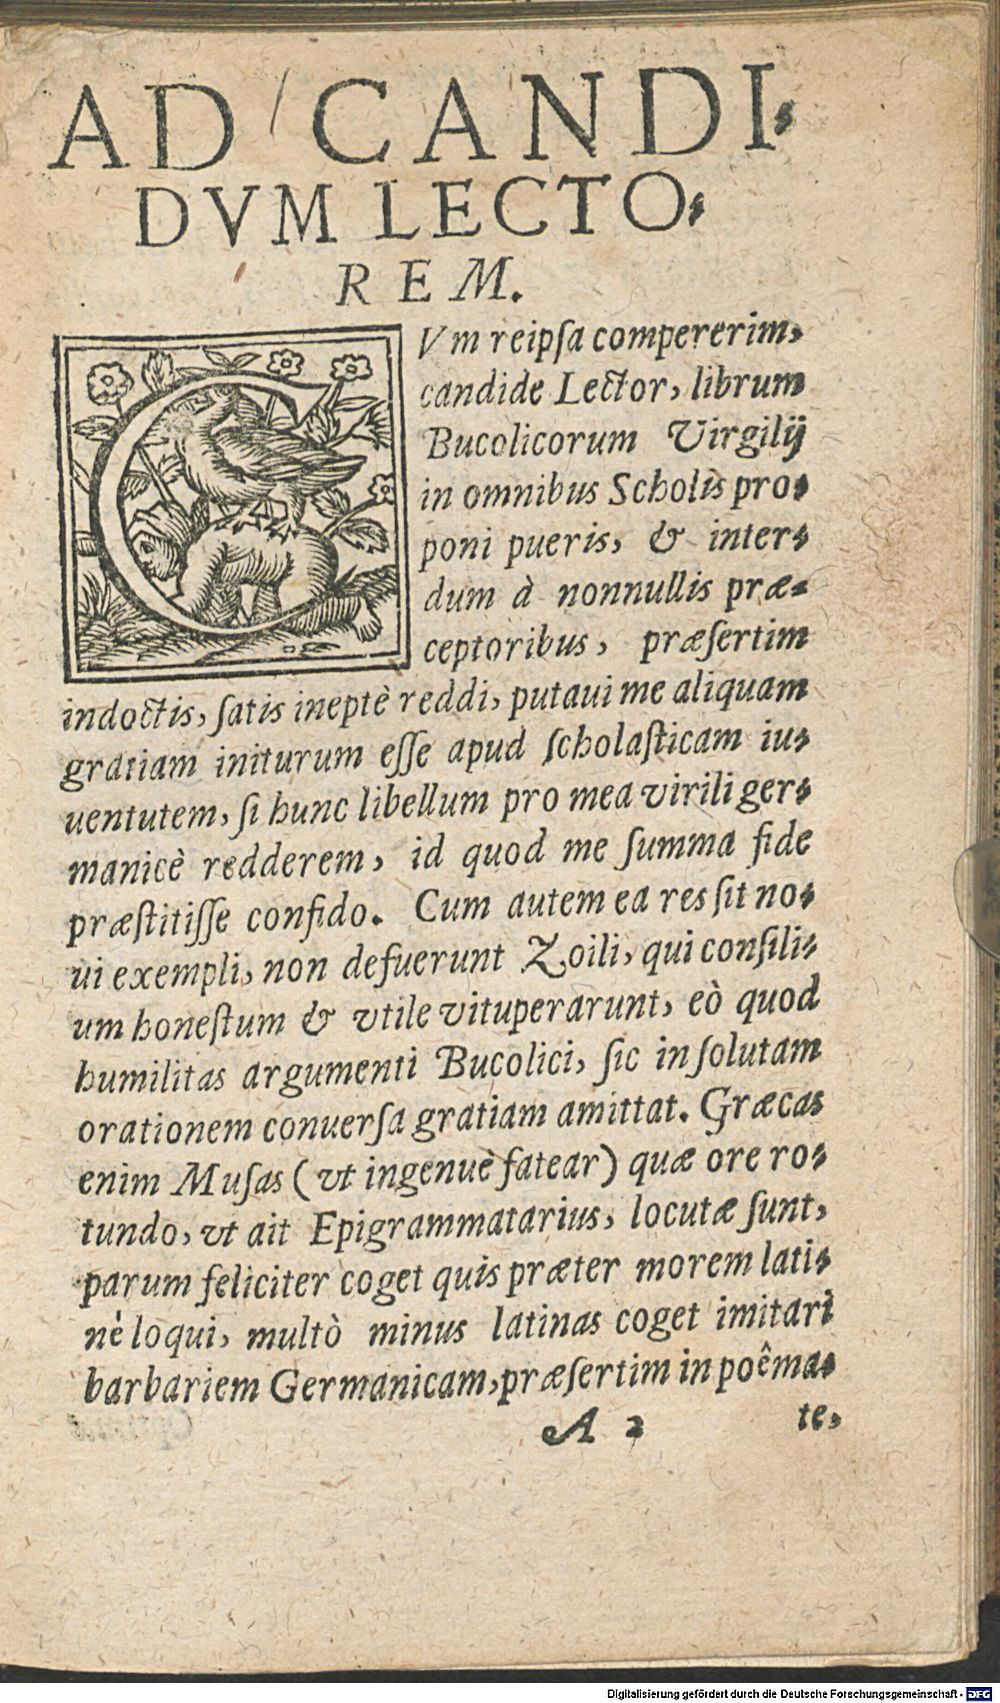 AD CANDI-
DVM LECTO-
REM.
CVm reipſa compererim,
candide Lector, librum
Bucolicorum Virgilij
in omnibus Scholis pro-
poni pueris, & inter-
dum à nonnullis præ-
ceptoribus, præſertim
indoctis, ſatis ineptè reddi, putaui me aliquam
gratiam initurum eſſe apud ſcholaſticam iu-
uentutem, ſi hunc libellum pro mea virili ger-
manicè redderem, id quod me ſumma fide
præſtitiſſe confido. Cum autem ea res ſit no-
ui exempli, non defuerunt Zoili, qui conſili-
um honeſtum & vtile vituperarunt, eò quod
humilitas argumenti Bucolici, ſic in ſolutam
orationem conuerſa gratiam amittat. Græcas
enim Muſas (vt ingenuè fatear) quæ ore ro-
tundo, vt ait Epigrammatarius, locutæ ſunt,
parum feliciter coget quis præter morem lati-
nè loqui, multò minus latinas coget imitari
barbariem Germanicam, præſertim in poêma-
A 2 te,
Digitalisierung gefördert durch die Deutsche Forschungsgemeinschaft - DFG